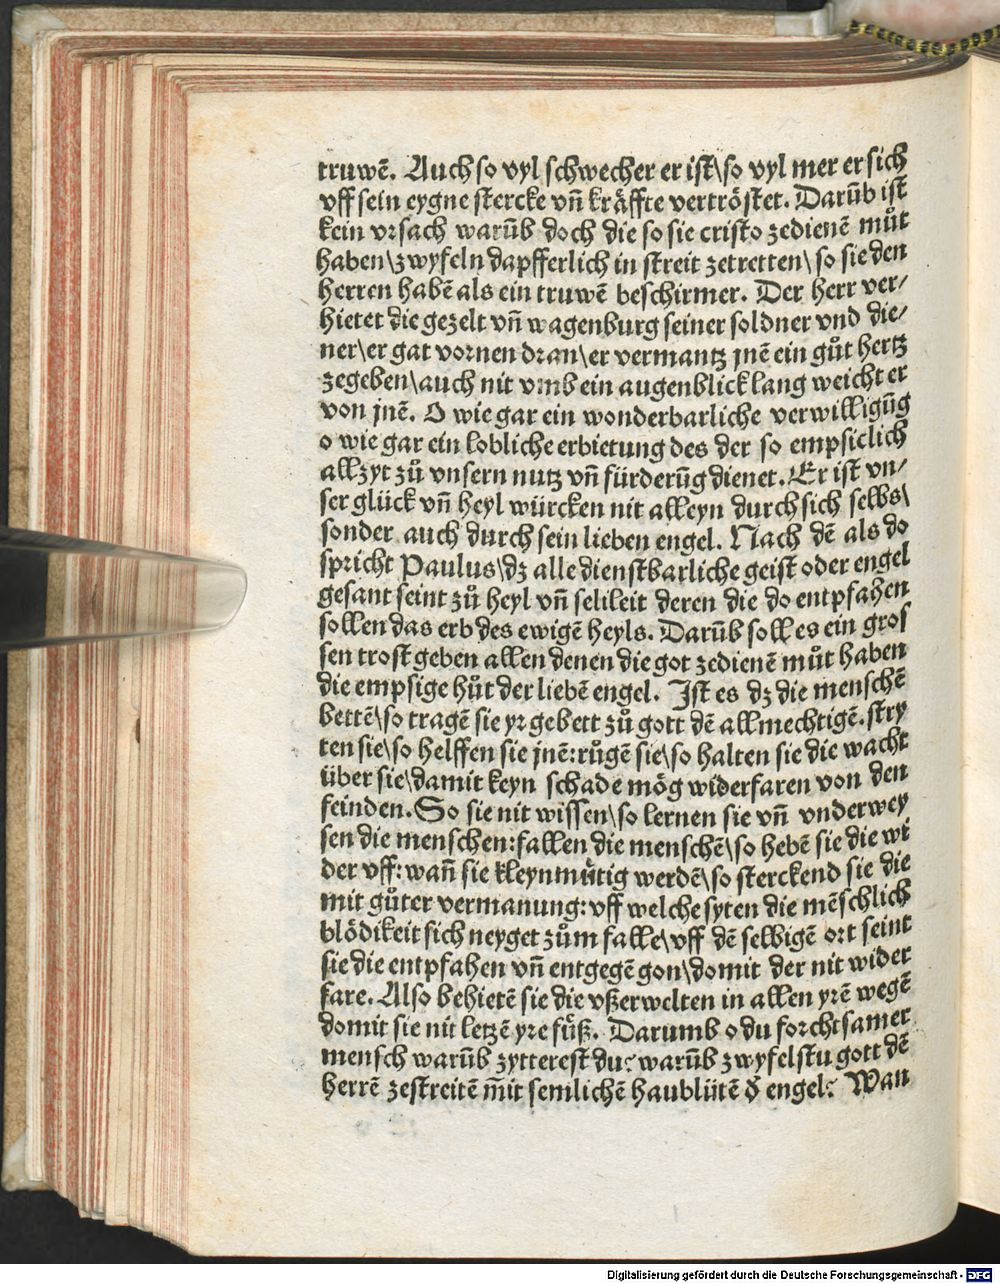 truwē. Auch so vyl schwecher er ist\so vyl mer er sich
vff sein eygne stercke vn̄ kräffte vertröstet. Darūb ist
kein vrsach warūb doch die so sie cristo zedienē můt
haben\zwyfeln dapfferlich in streit zetretten\so sie den
herren habē als ein truwē beschirmer. Der herr ver/
hietet die gezelt vn̄ wagenburg seiner soldner vnd die/
ner\er gat vornen dran\er vermantz jnē ein gůt hertz
zegeben\auch nit vmb ein augenblick lang weicht er
von jnē. O wie gar ein wonderbarliche verwilligūg
o wie gar ein lobliche erbietung des der so empsiclich
allzyt zů vnsern nutz vn̄ fürderūg dienet. Er ist vn/
ser glück vn̄ heyl würcken nit alleyn durch sich selbs\
sonder auch durch sein lieben engel. Nach dē als do
spricht Paulus\dz alle dienstbarliche geist oder engel
gesant seint zů heyl vn̄ selileit deren die do entpfahen
sollen das erb des ewigē heyls. Darūb soll es ein gros
sen trost geben allen denen die got zedienē můt haben
die empsige hůt der liebē engel. Ist es dz die menschē
bettē\so tragē sie yr gebett zů gott dē allmechtigē. stry
ten sie\so helffen sie jnē: růgē sie\so halten sie die wacht
über sie\damit keyn schade mög widerfaren von den
feinden. So sie nit wissen\so lernen sie vn̄ vnderwey
sen die menschen: fallen die menschē\so hebē sie die wi
der vff: wan̄ sie kleynmütig werdē\so sterckend sie die
mit gůter vermanung: vff welche syten die mēschlich
blödikeit sich neyget zům falle\vff dē selbigē ort seint
sie die entpfahen vn̄ entgegē gon\domit der nit wider
fare. Also behietē sie die vßerwelten in allen yrē wegē
domit sie nit letzē yre füß. Darumb o du forchtsamer
mensch warūb zytterest du? warūb zwyfelstu gott dē
herrē zestreitē m̄it semlichē haublütē d̕ engel? Wan
Digitalisierung gefördert durch die Deutsche Forschungsgemeinschaft - DFG